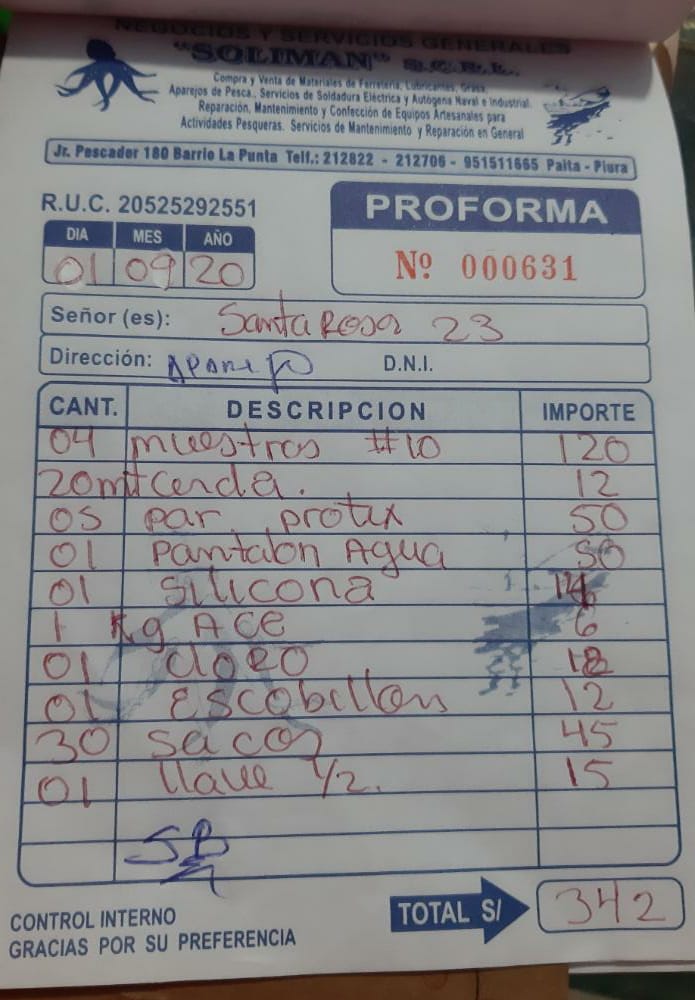 NEGOCIOS Y SERVICIOS GENERALES
"SOLIMAN" S.C.R.L.
Compra y Venta de Materiales de Ferretería, Lubricantes, Grasa,
Aparejos de Pesca., Servicios de Soldadura Eléctrica y Autógena Naval e Industrial.
Reparación, Mantenimiento y Confección de Equipos Artesanales para
Actividades Pesqueras. Servicios de Mantenimiento y Reparación en General
Jr. Pescador 180 Barrio La Punta Telf.: 212822 - 212706 - 951511665 Paita - Piura
R.U.C. 20525292551
PROFORMA
Nº 000631
DIA MES AÑO
01 09 20
Señor (es): Santa Rosa 23
Dirección: Aparejo D.N.I.
CANT. DESCRIPCION IMPORTE
04 muestras #10 120
20mt cerda. 12
05 par protex 50
01 Pantalon Agua 50
01 Silicona 14
1 Kg ACE 6
01 cloro 18
01 Escobillon 12
30 sacos 45
01 llave 1/2. 15
SB
TOTAL S/ 342
CONTROL INTERNO
GRACIAS POR SU PREFERENCIA